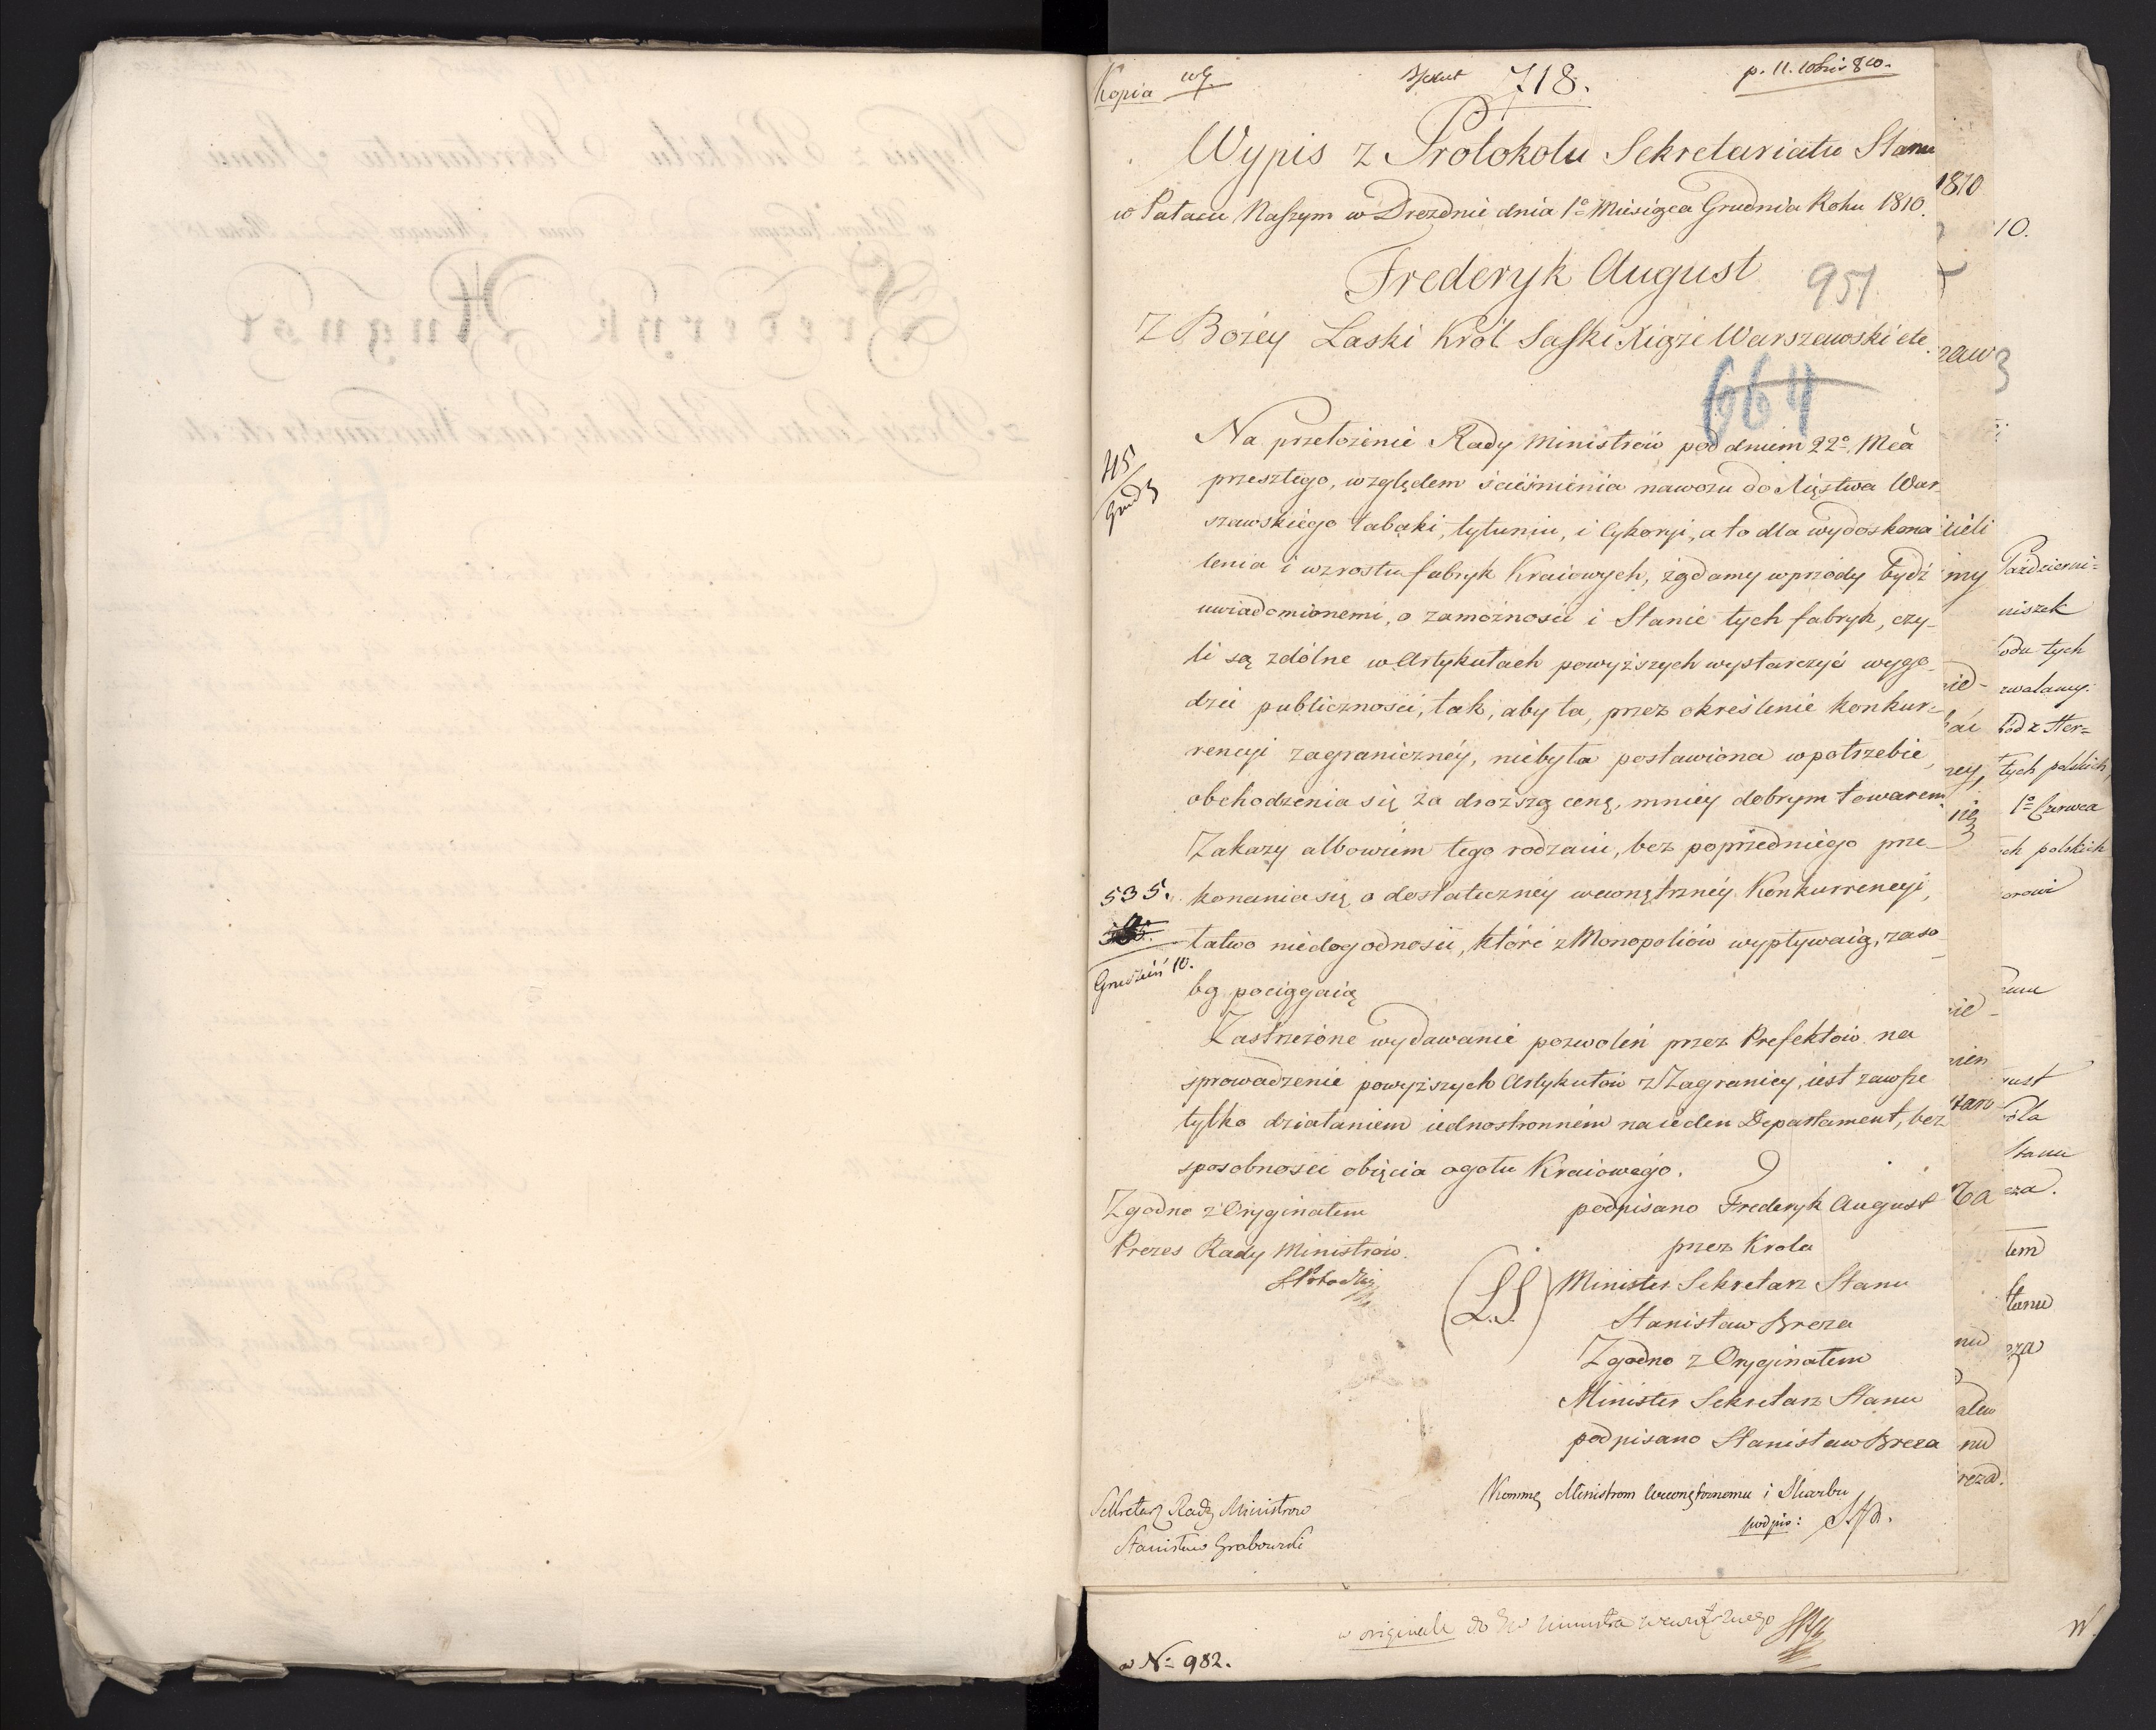 Kopia
718.
p. 11. Xbris 810.
Wypis z Protokołu Sekretariatu Stanu
w Pałacu Naszym w Dreznie dnia 1º Miesiąca Grudnia Roku 1810.
Frederyk August
951
Z Bożey Łaski Król Saski Xiąże Warszawski etc
664
Na przełożenie Rady Ministrów pod dniem 22º Mca
przeszłego, względem ścieśnienia nawozu do Xięstwa War-
szawskiego tabaki, tytuniu, i cykoryi, a to dla wydoskona-
lenia i wzrostu fabryk Kraiowych, żądamy wprzódy bydź
uwiadomionemi, o zamożności i Stanie tych fabryk, czy-
li są zdólne w Artykułach powyższych wystarczyć wygo-
dzie publiczności, tak, aby ta, przez określenie konkur-
rencyi zagraniczney, niebyła postawiona w potrzebie,
obchodzenia się za droższą cenę, mniey dobrym towarem
Zakazy albowiem tego rodzaiu, bez poprzedniego prze-
konania się o dostateczney wewnętrzney Konkurrencyi,
łatwo niedogodności, które z Monopoliów wypływaią, za so-
bą pociągaią
Zastrzeżone wydawanie pozwoleń przez Prefektów na
sprowadzenie powyższych Artykułów z Zagranicy, iest zawsze
tylko działaniem iednostronném na ieden Departament, bez
sposobności obięcia ogółu Kraiowego.
115
Grud
535.
Grudzień 10.
Zgodno z Oryginałem
Prezes Rady Ministrów.
podpisano Frederyk August
przez Króla
(L.S.)
Minister Sekretarz Stanu
Stanisław Breza
Zgodno z Oryginałem
Minister Sekretarz Stanu
podpisano Stanisław Breza
Sekretarz Rady Ministrow
Stanisław Grabowski
Kommę Ministrom Wewnętrznemu i Skarbu
podpis:
w originale do Ministra wewnętrznego
Nº 982.
1810
10.
Paźdzerni=
niszek
odu tych
zwalamy.
tych polskich,
1º Czerwca
ch polskich